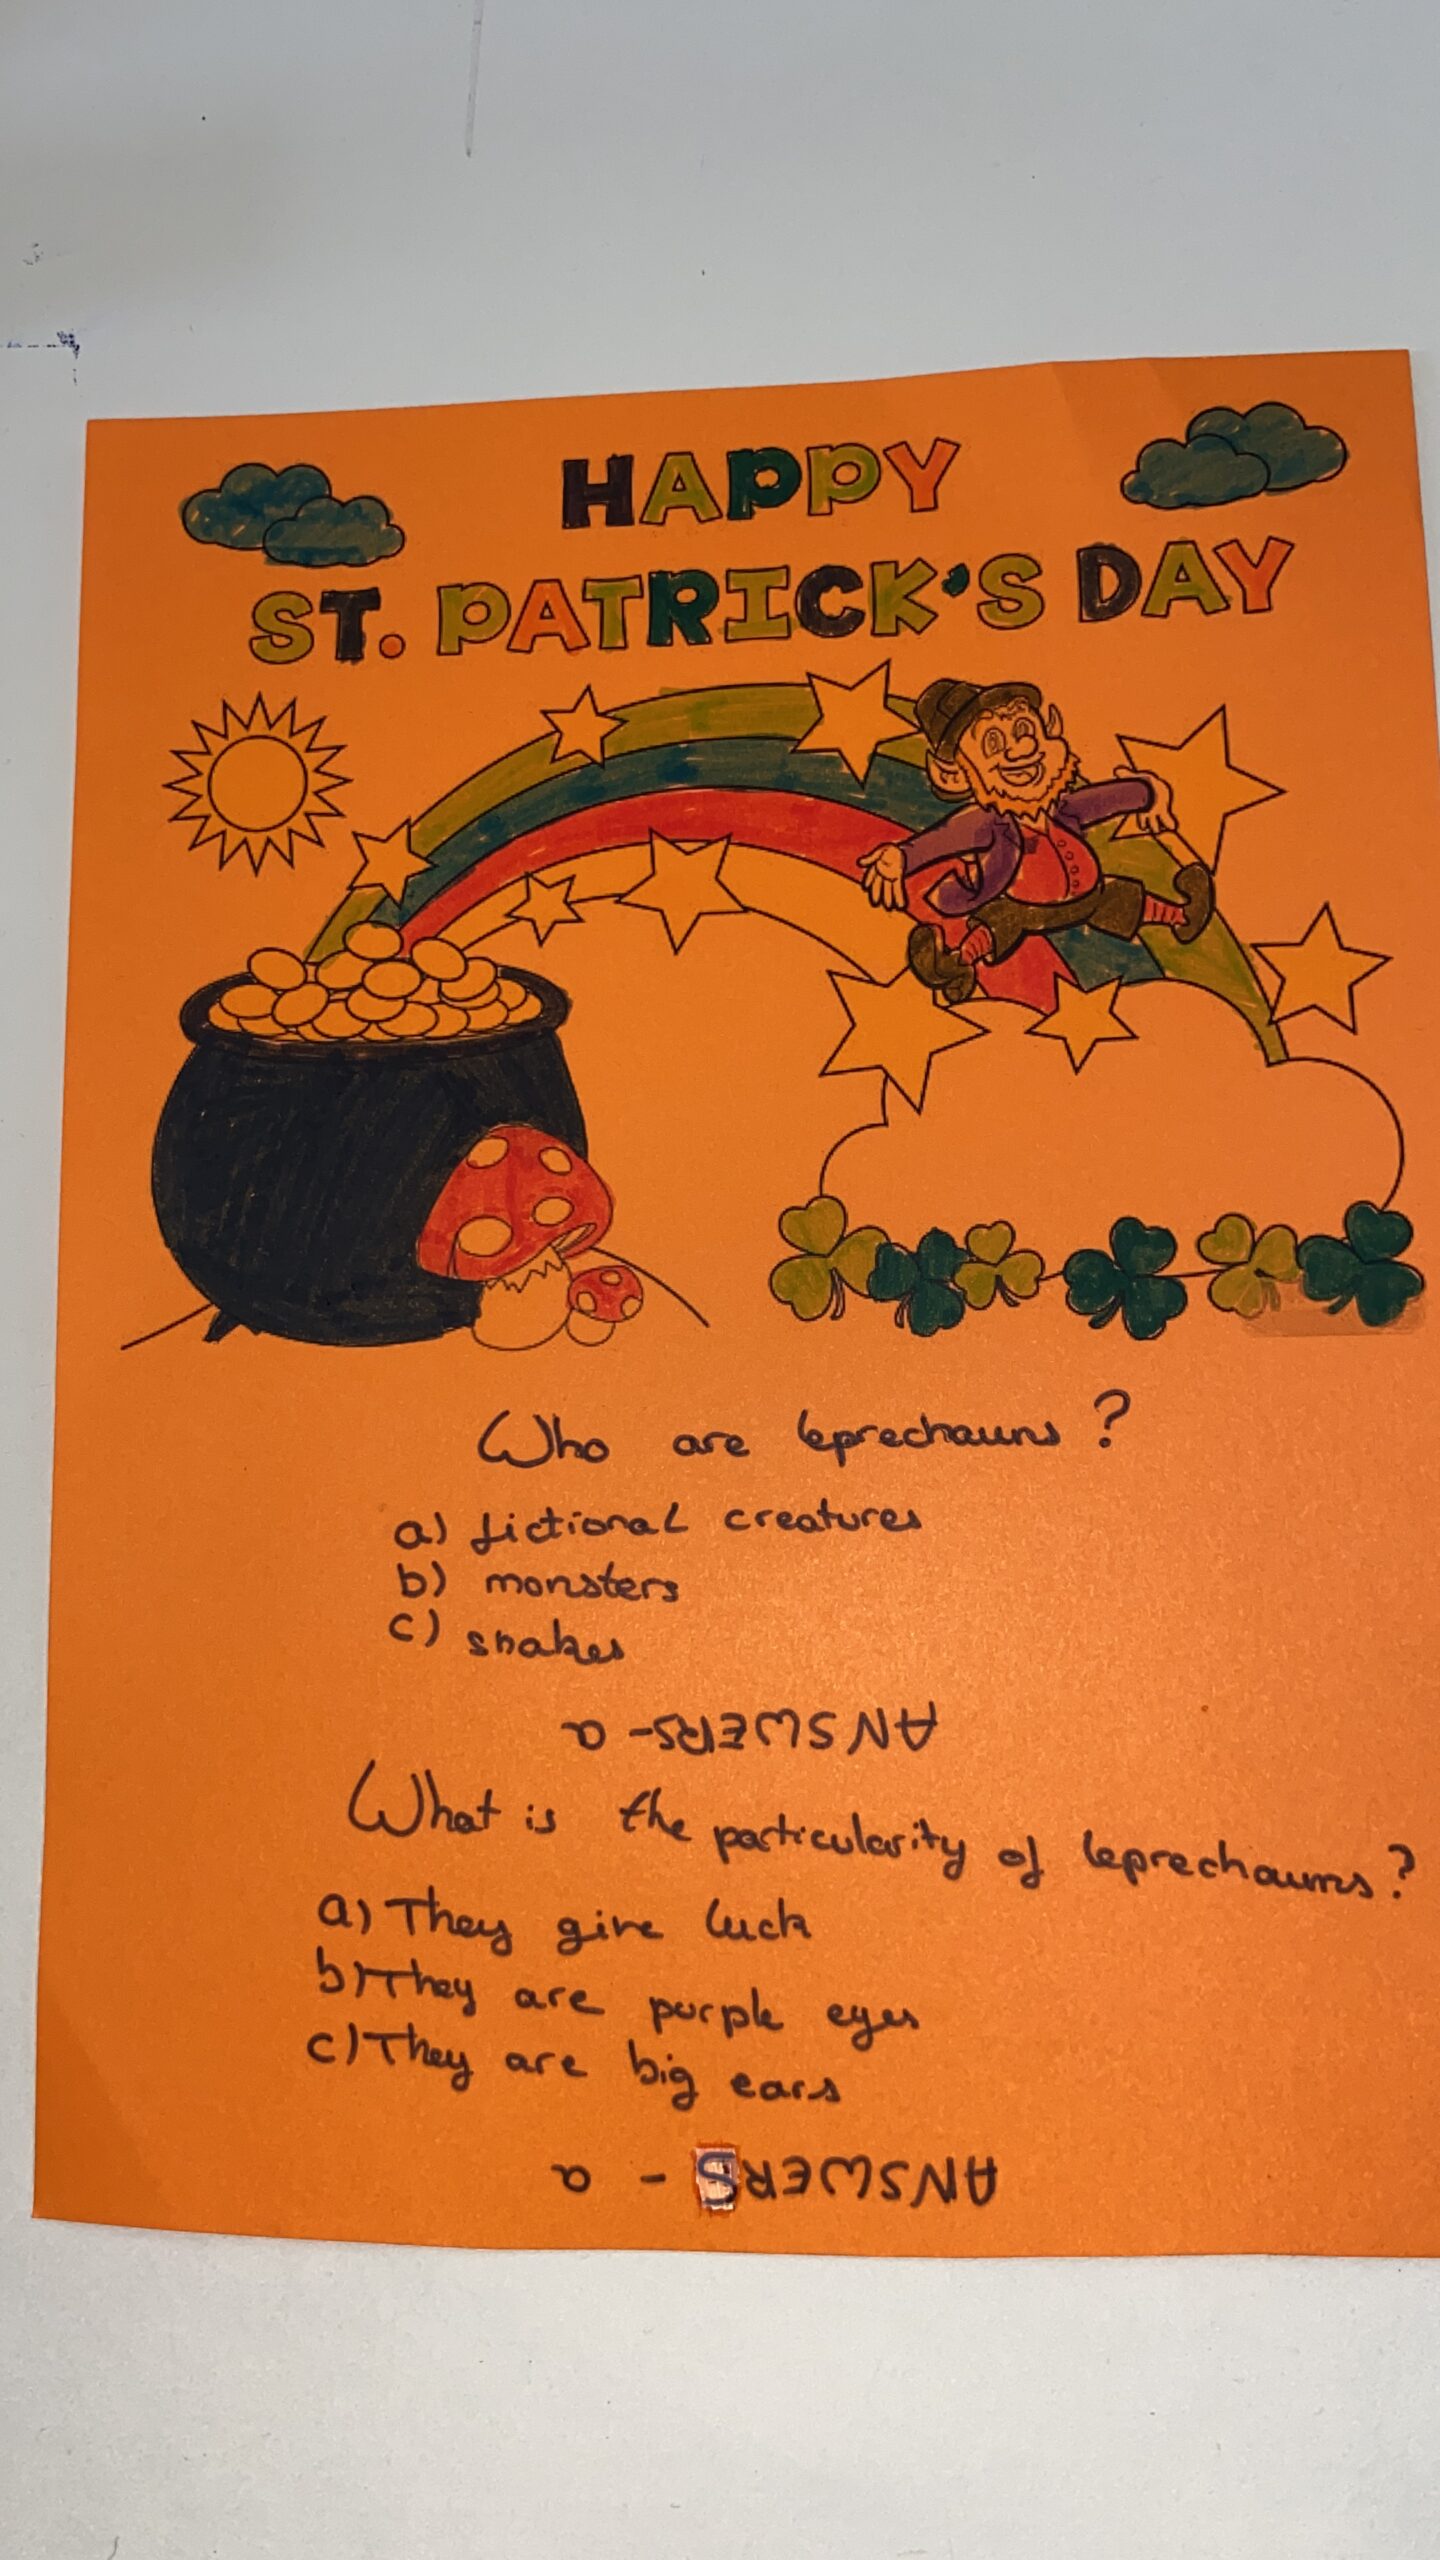 HAPPY
ST. PATRICK'S DAY
Who are leprechauns ?
a) fictional creatures
b) monsters
c) snakes
ANSWERS- a
What is the particularity of leprechauns ?
a) They give luck
b) They are purple eyes
c) They are big ears
ANSWERS - a